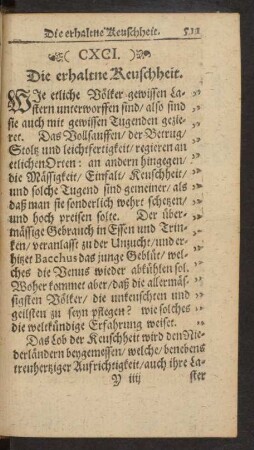 Die erhaltne Keuschheit. 511
( CXCI. )
Die erhaltne Keuschheit.
WJe etliche Völker gewissen La-
stern unterworffen sind/ also sind
sie auch mit gewissen Tugenden gezie-
ret. Das Vollsauffen/ der Betrug/
Stoltz und leichtfertigkeit/ regieren an
etlichen Orten: an andern hingegen/
die Mässigkeit/ Einfalt/ Keuschheit/
und solche Tugend sind gemeiner/ als
daß man sie sonderlich wehrt schetzen/
und hoch preisen solte. Der über-
mässige Gebrauch in Essen und Trin-
ken/ veranlasst zu der Unzucht/ und er-
hitzet Bacchus das junge Geblüt/ wel-
ches die Venus wieder abkühlen sol.
Woher kommet aber/ daß die allermäs-
sigsten Völker/ die unkeuschten und
geilsten zu seyn pflegen? wie solches
die weltkündige Erfahrung weiset.
Das Lob der Keuschheit wird den Nie-
derländern beygemessen/ welche/ benebens
treuhertziger Aufrichtigkeit/ auch ihre La-
Y iiij ster